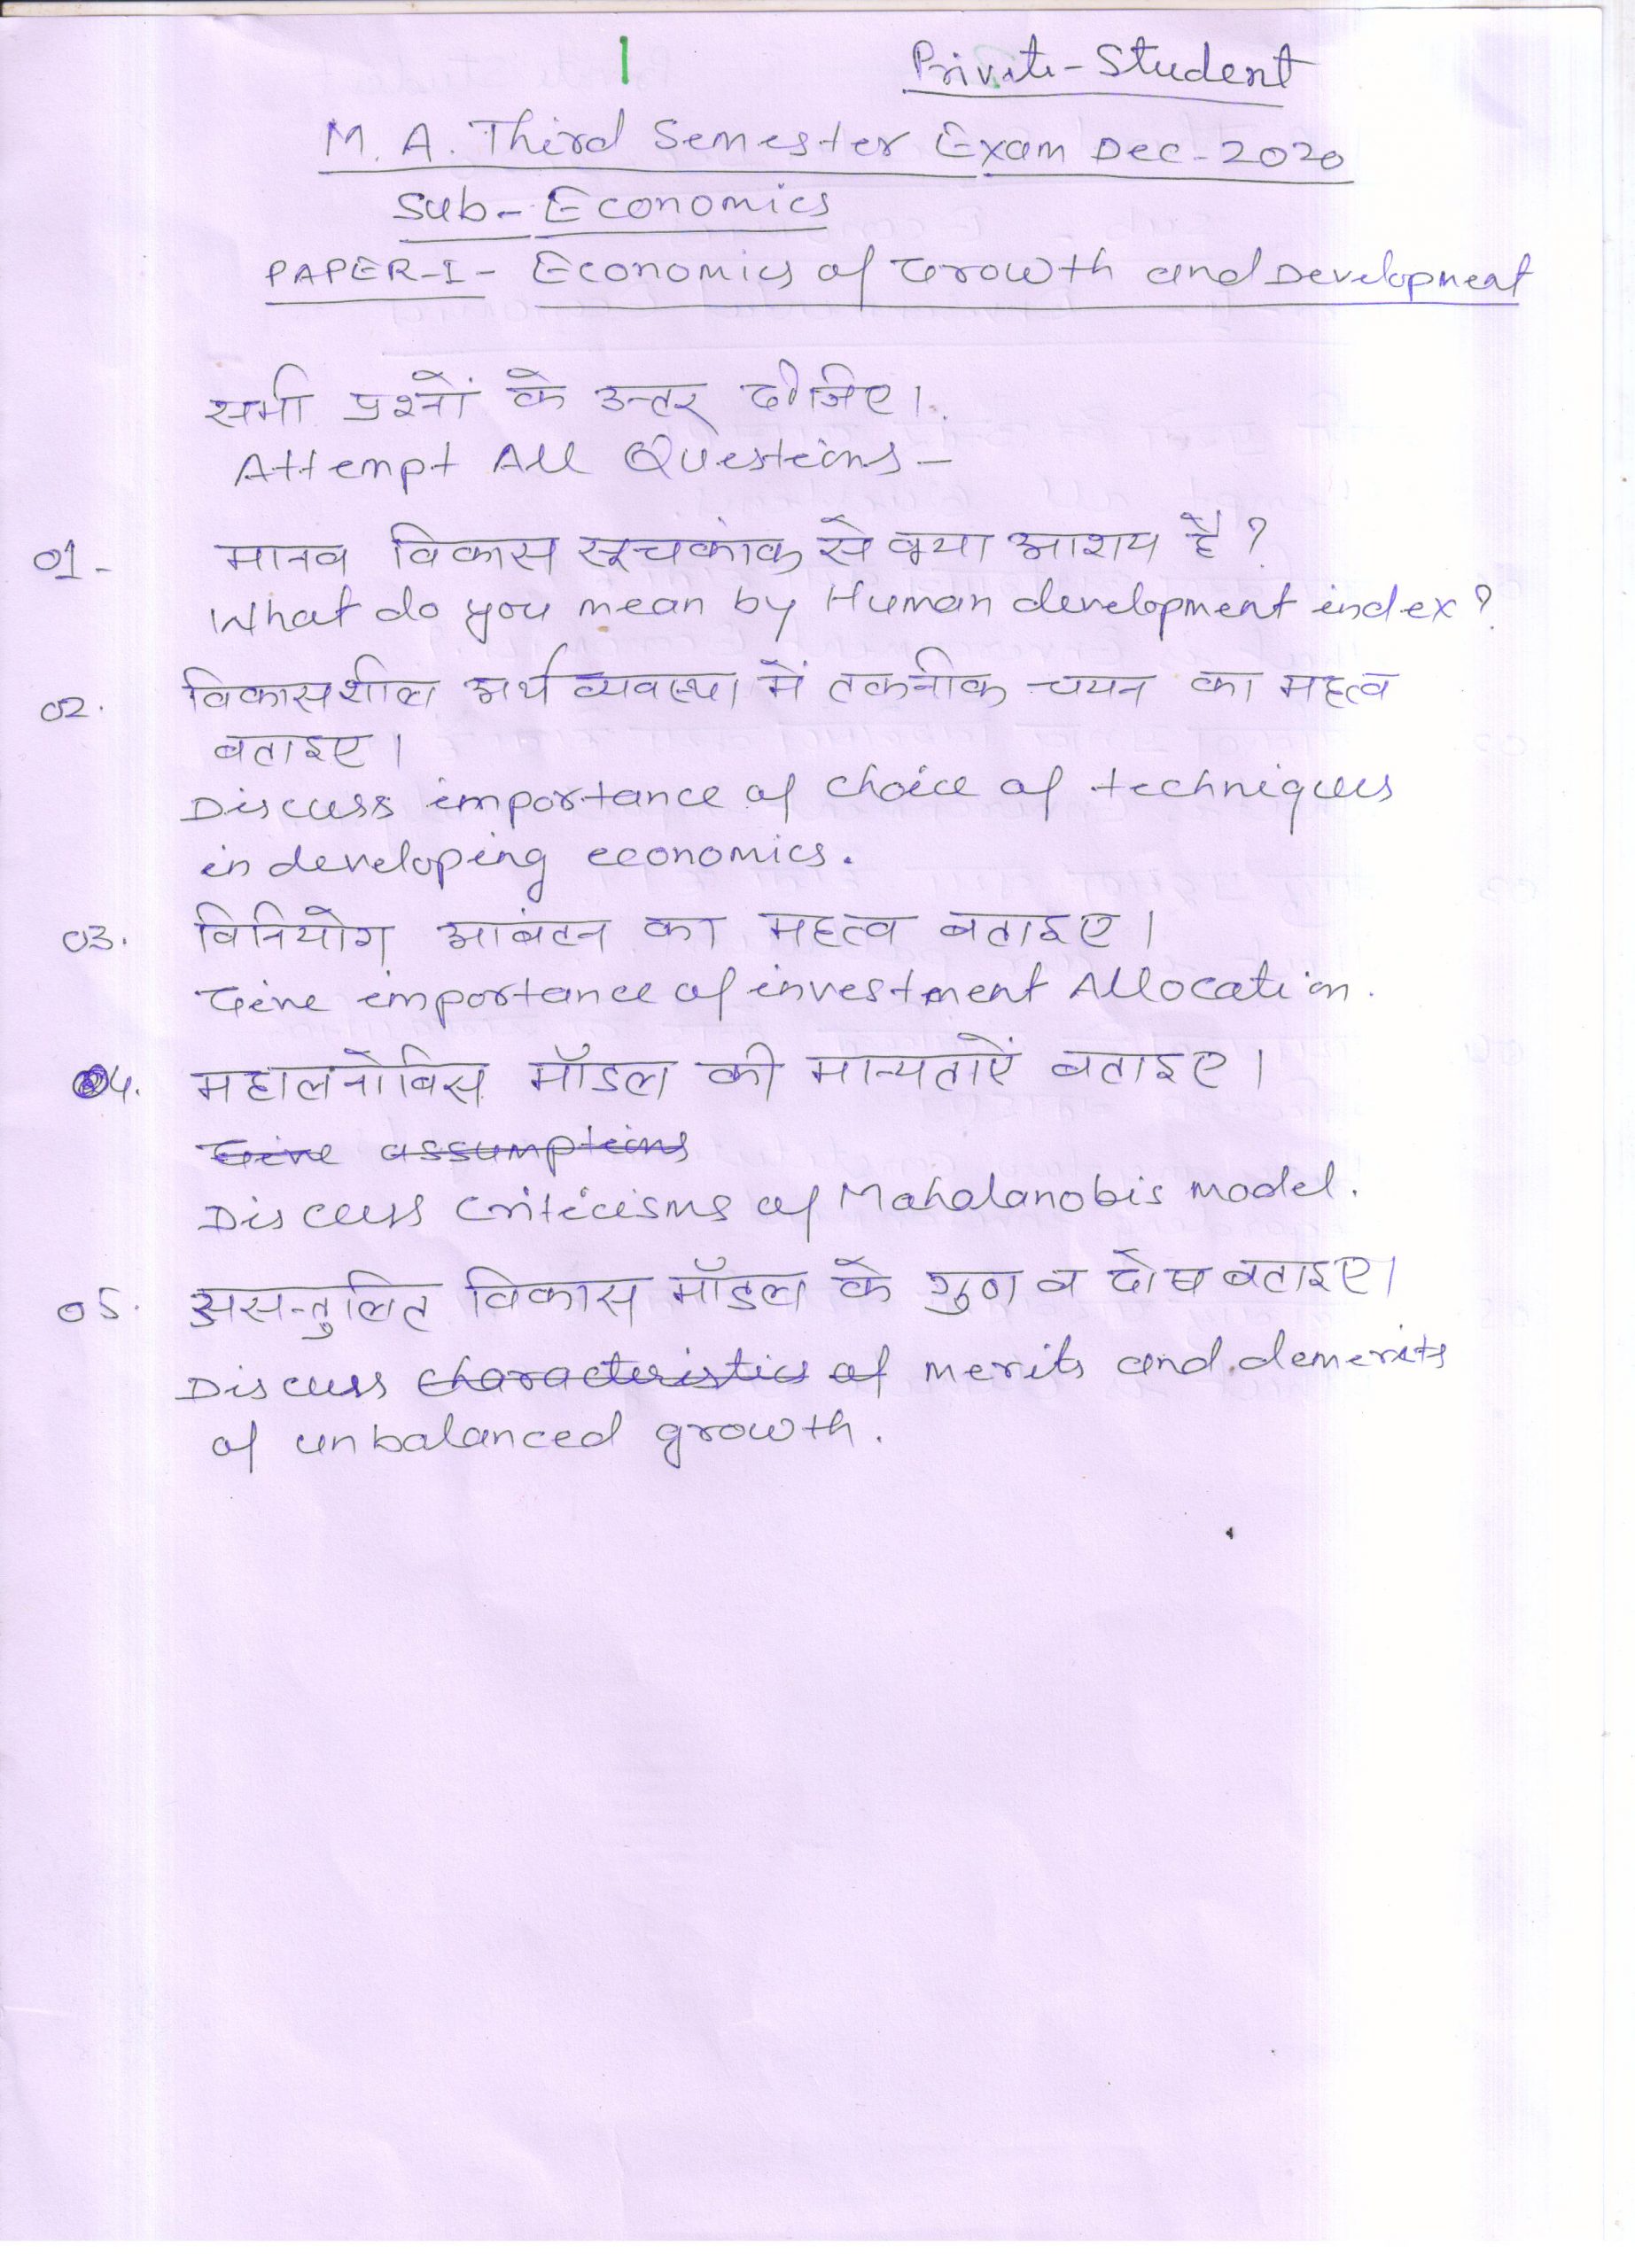 1
Private-Student
M. A. Third Semester Exam Dec-2020
Sub- Economics
PAPER-I- Economics of Growth and Development
सभी प्रश्नों के उत्तर दीजिए।
Attempt All Questions-
01- मानव विकास सूचकांक से क्या आशय है?
What do you mean by Human development index?
02. विकासशील अर्थव्यवस्था में तकनीक चयन का महत्व
बताइए।
Discuss importance of choice of techniques
in developing economics.
03. विनियोग आबंटन का महत्व बताइए।
Give importance of investment Allocation.
04. महालनोबिस मॉडल की मान्यताऐं बताइए।
Give assumptions
Discuss criticisms of Mahalanobis model.
05. असन्तुलित विकास मॉडल के गुण व दोष बताइए।
Discuss characteristics of merits and demerits
of unbalanced growth.